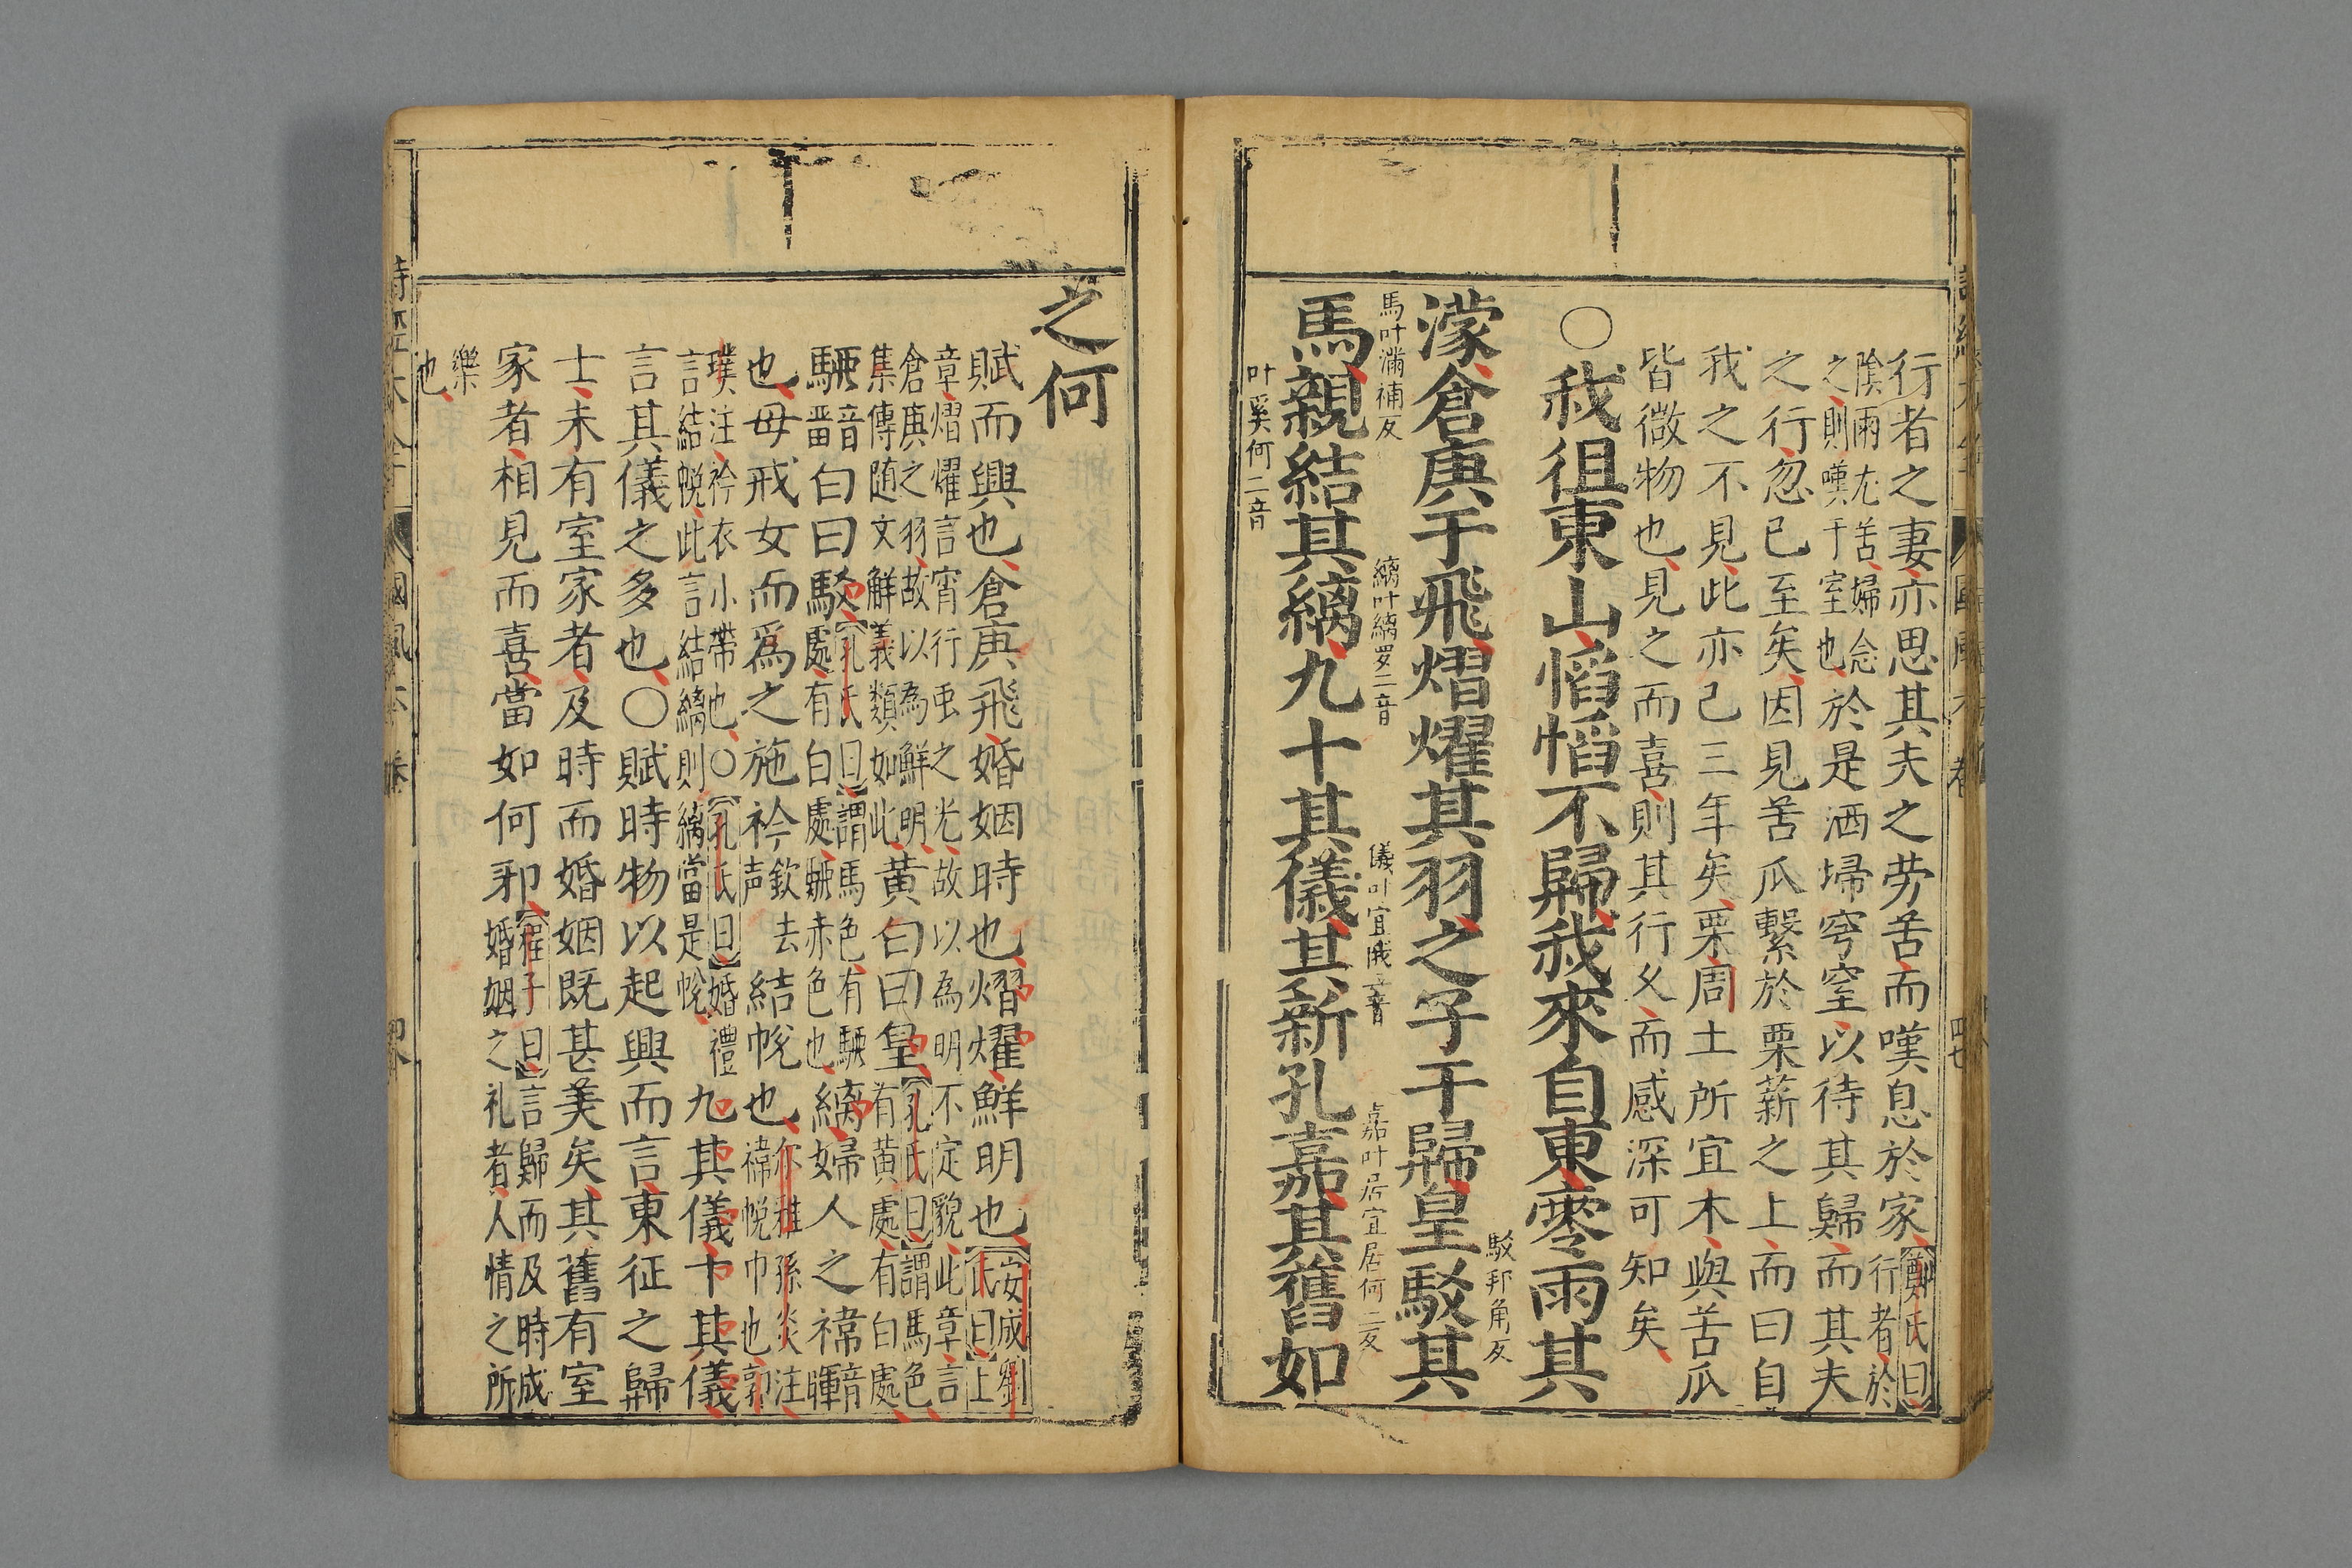 行者之妻亦思其夫之劳苦而嘆息於家【鄭氏曰】行者於
陰雨尤苦婦念之則嘆于室也於是洒埽穹窒以待其歸而其夫
之行忽已至矣因見苦瓜繫於栗薪之上而曰自
我之不見此亦已三年矣栗周土所宜木與苦瓜
皆微物也見之而喜則其行久而感深可知矣
○我徂東山慆慆不歸我來自東零雨其
濛倉庚于飛熠燿其羽之子于歸皇駁其
駁邦角反
馬親結其縭九十其儀其新孔嘉其舊如
馬叶滿補反
縭叶縭罗二音
儀叶宜俄二音
嘉叶居宜居何二反
叶奚何二音
之何
賦而興也倉庚飛婚姻時也熠燿鮮明也【安成劉氏曰】上
章熠燿言宵行虫之光故以為明不定貌此章言
倉庚之羽故以為鮮明集傳随文解義類如此黄白曰皇【孔氏曰】謂馬色有黄處有白處
駵音畱白曰駁【孔氏曰】謂馬色有駵處有白處駵赤色也縭婦人之褘音暉
也母戒女而爲之施衿欽去声結帨也尓雅孫炎注褘帨巾也郭
璞注衿衣小帶也○【孔氏曰】婚禮言結帨此言結縭則縭當是帨九其儀十其儀
言其儀之多也○賦時物以起興而言東征之歸
士未有室家者及時而婚姻既甚美矣其舊有室
家者相見而喜當如何邪【程子曰】言歸而及時成婚姻之礼者人情之所
樂也
詩經大全
國風 卷